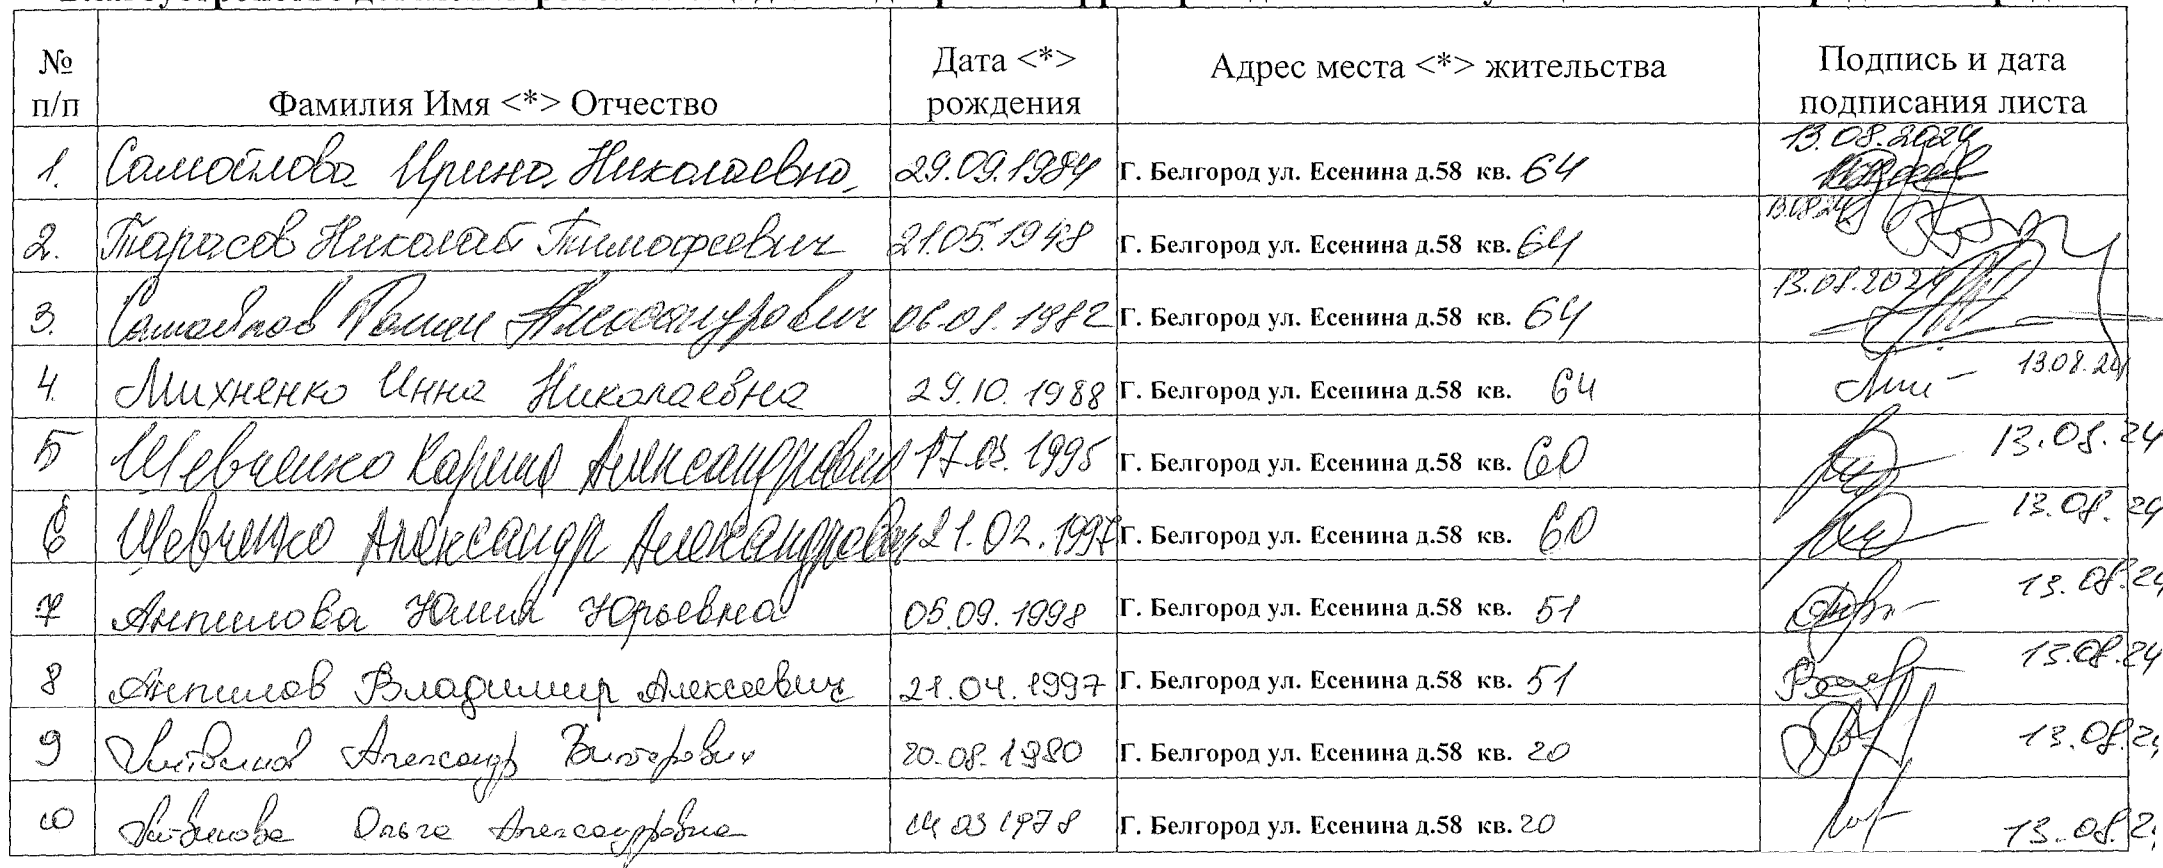 № п/п Фамилия Имя <*> Отчество Дата <*> рождения Адрес места <*> жительства Подпись и дата подписания листа
1. Самойлова Ирина Николаевна. 29.09.1984 Г. Белгород ул. Есенина д.58 кв. 64 13.08.2024
2. Тарасов Николай Тимофеевич 21.05.1948 Г. Белгород ул. Есенина д.58 кв. 64 13.08.24
3. Самойлов Роман Александрович 06.08.1982 Г. Белгород ул. Есенина д.58 кв. 64 13.08.2024
4. Михненко Инна Николаевна 29.10.1988 Г. Белгород ул. Есенина д.58 кв. 64 13.08.24
5 Шевченко Карина Александровна 17.03.1995 Г. Белгород ул. Есенина д.58 кв. 60 13.08.24
6 Шевченко Александр Александрович 21.02.1997 Г. Белгород ул. Есенина д.58 кв. 60 13.08.24
7 Анпилова Юлия Юрьевна 05.09.1998 Г. Белгород ул. Есенина д.58 кв. 51 13.08.24
8 Анпилов Владимир Алексеевич 21.04.1997 Г. Белгород ул. Есенина д.58 кв. 51 13.08.24
9 Литвинов Александр Викторович 20.08.1980 Г. Белгород ул. Есенина д.58 кв. 20 13.08.2
10 Литвинова Ольга Александровна 14 03 1978 Г. Белгород ул. Есенина д.58 кв. 20 13.08.2